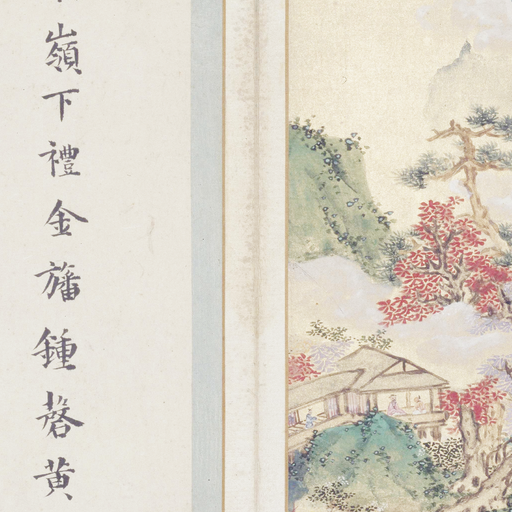 嶺下禮金旛鍾磬黄